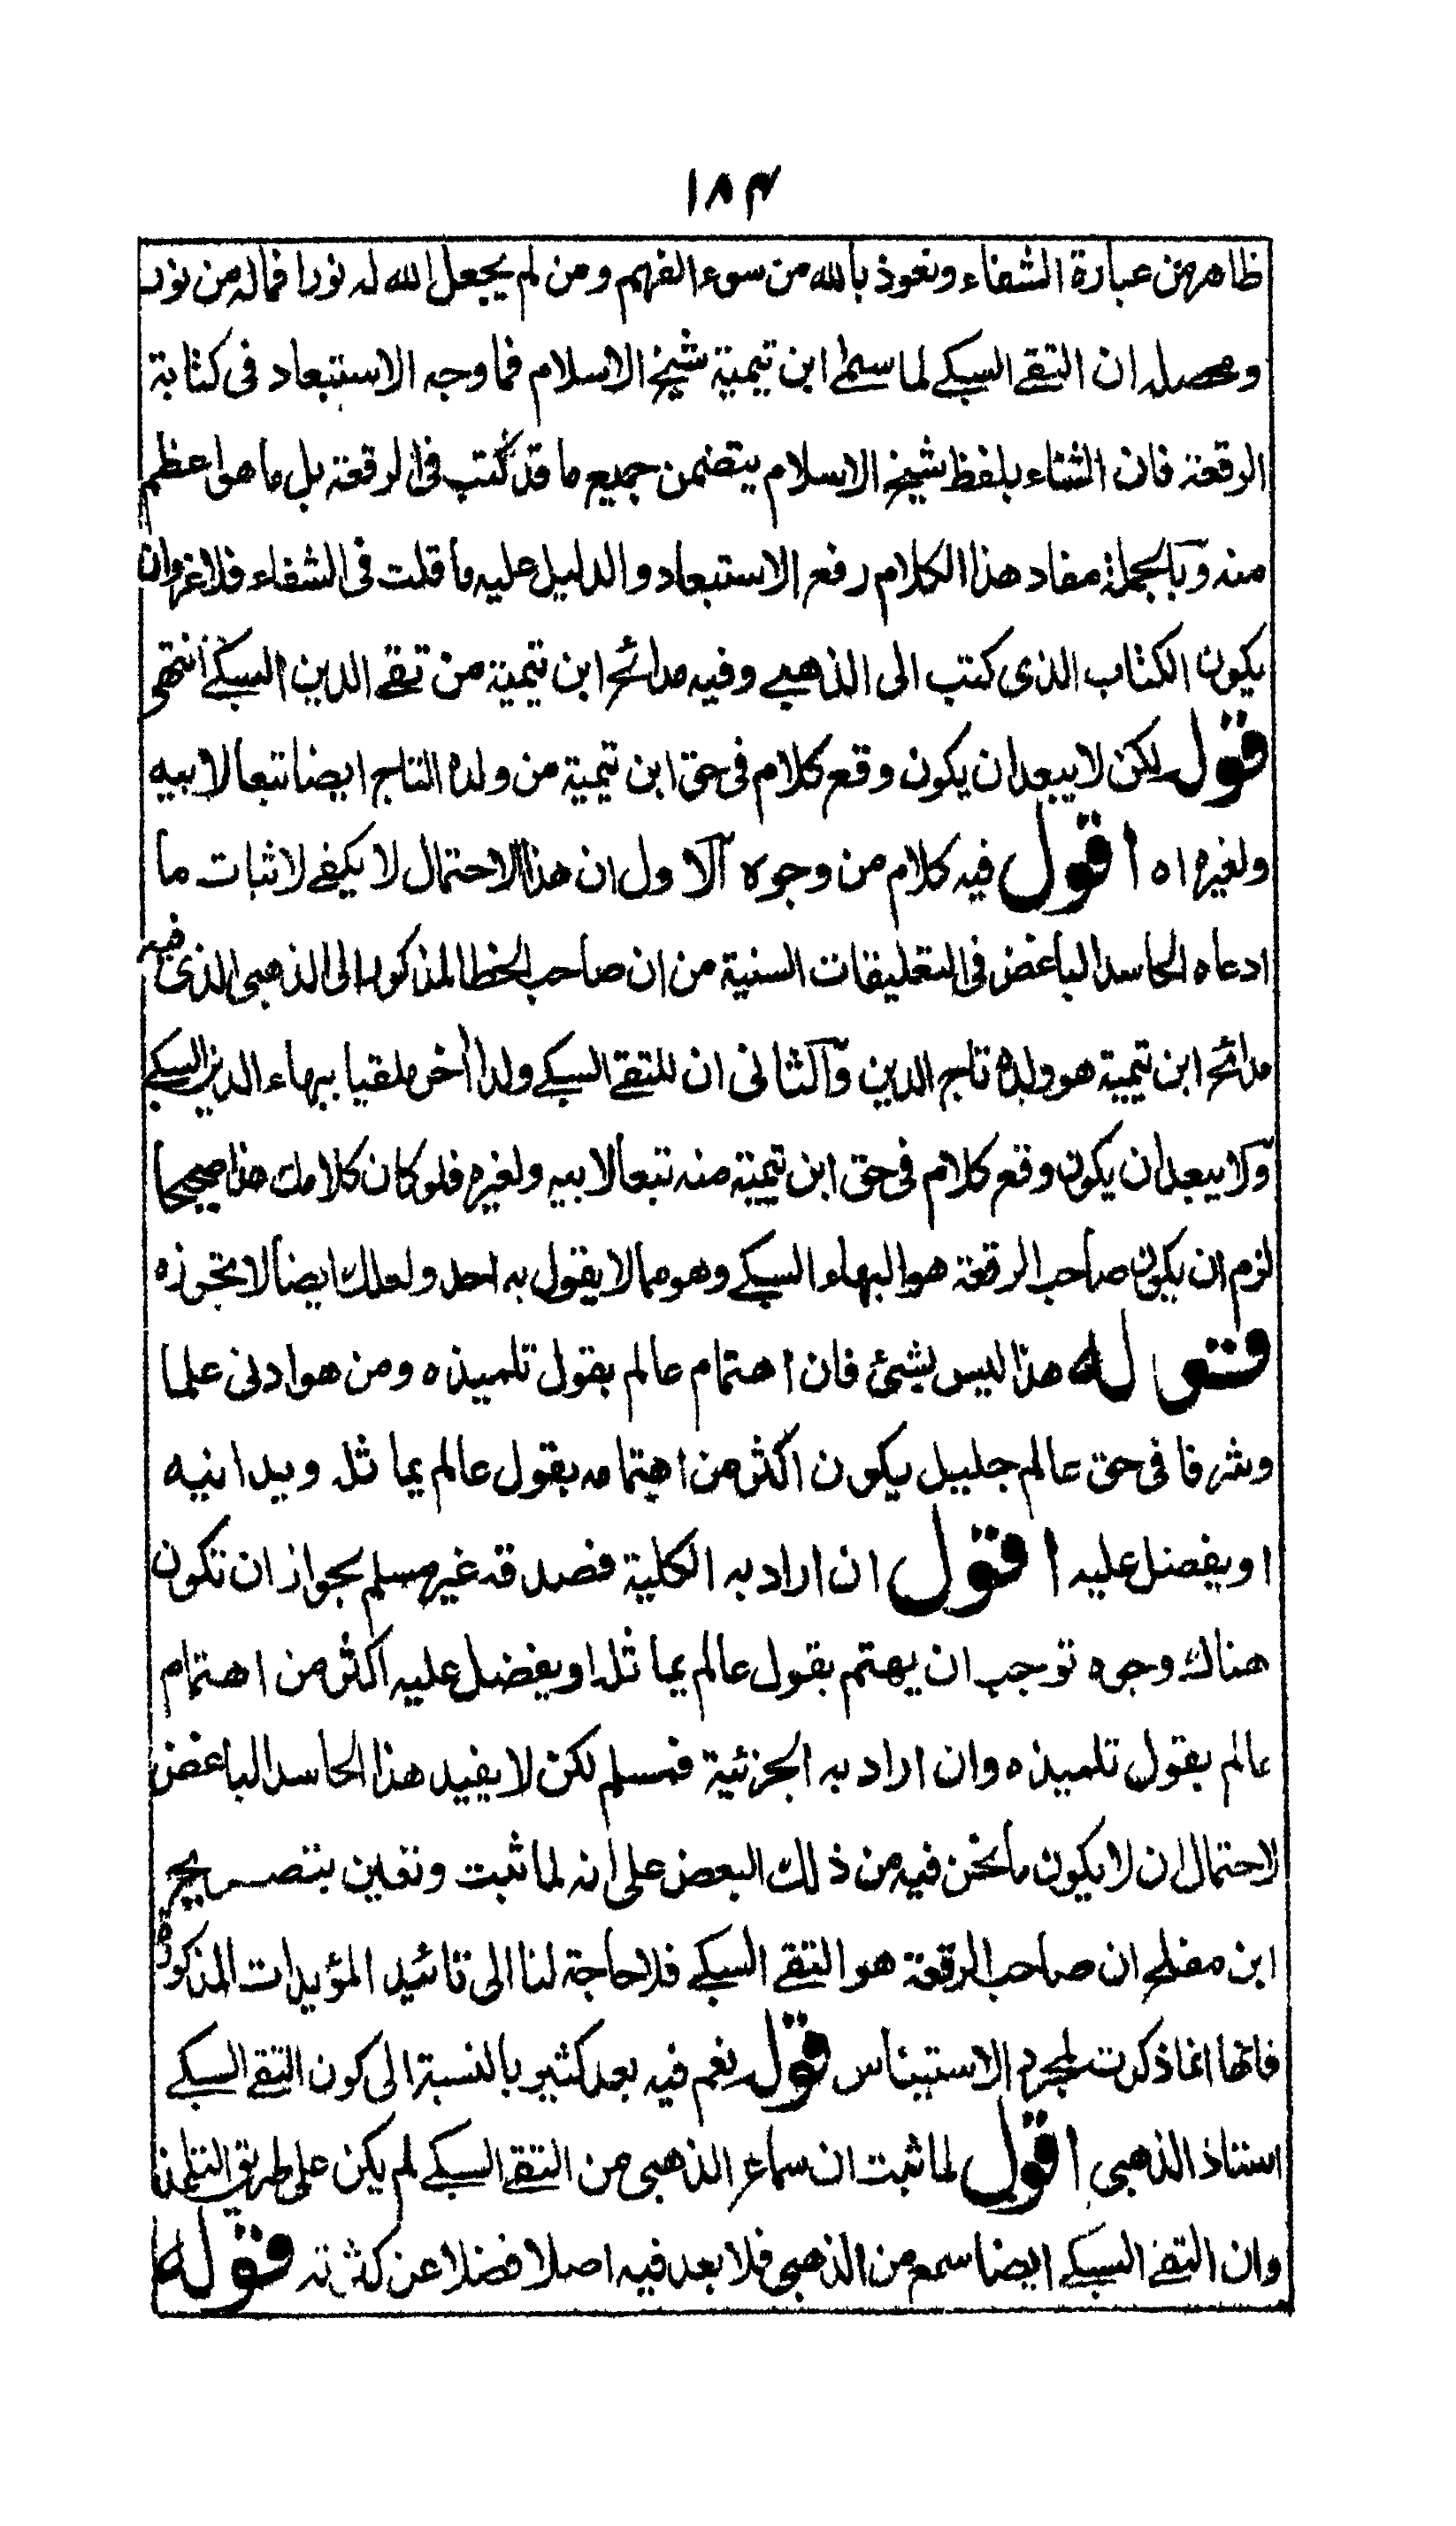 ١٨٤
ظاهر من عبارة الشفاء ونعوذ بالله من سوء الفهم ومن لم يجعل الله له نورا فماله من نور
ومحصله ان التقے السبكے لما سمى ابن تيمية شيخ الاسلام فما وجه الاستبعاد فى كتابة
الرقعة فان الثناء بلفظ شيخ الاسلام يتضمن جميع ما قد كتب فى الرقعة بل ما هو اعظم
منه وبالجملة مفاد هذا الكلام رفع الاستبعاد والدليل عليه ما قلت فى الشفاء فلا غرو ان
يكون الكتاب الذى كتب الى الذهبے وفيه مدائح ابن تيمية من تقے الدين السبكے انتهى
قوله لكن لا يبعد ان يكون وقع كلام فى حق ابن تيمية من ولده التاج ايضا تبعا لابيه
ولغيره اه اقول فيه كلام من وجوه الاول ان هذا الاحتمال لا يكفے لاثبات ما
ادعاه الحاسد الباغض فى التعليقات السنية من ان صاحب الخط المذكور الى الذهبى الذى فيه
مدائح ابن تيمية هو ولده تاج الدين والثانى ان للتقے السبكے ولدا اخر ملقبا ببهاء الدين السبكے
ولا يبعد ان يكون وقع كلام فى حق ابن تيمية منه تبعا لابيه ولغيره فلو كان كلامك هذا صحيحا
لزم ان يكون صاحب الرقعة هو البهاء السبكے وهو مما لا يقول به احد ولعلك ايضا لا تجوزه
قوله هذا ليس بشئ فان اهتمام عالم بقول تلميذه ومن هو ادنى علما
وشرفا فى حق عالم جليل يكون اكثر من اهتمامه بقول عالم يماثله ويدانيه
او يفضل عليه اقول ان اراد به الكلية فصدقه غير مسلم بجواز ان تكون
هناك وجوه توجب ان يهتم بقول عالم يماثله او يفضل عليه اكثر من اهتمام
عالم بقول تلميذه وان اراد به الجزئية فمسلم لكن لا يفيد هذا الحاسد الباغض
لاحتمال ان لا يكون ما نحن فيه من ذلك البعض على انه لما ثبت وتعين بتصريح
ابن مفلح ان صاحب الرقعة هو التقے السبكے فلا حاجة لنا الى تائيد المؤيدات المذكورة
فانها انما ذكرت لمجرد الاستيناس قوله نعم فيه بعد كثير بالنسبة الى كون التقے السبكے
استاذ الذهبى اقول لما ثبت ان سماع الذهبى من التقے السبكے لم يكن على طريق التلمذ
وان التقے السبكے ايضا سمع من الذهبى فلا بعد فيه اصلا فضلا عن كثرته قوله